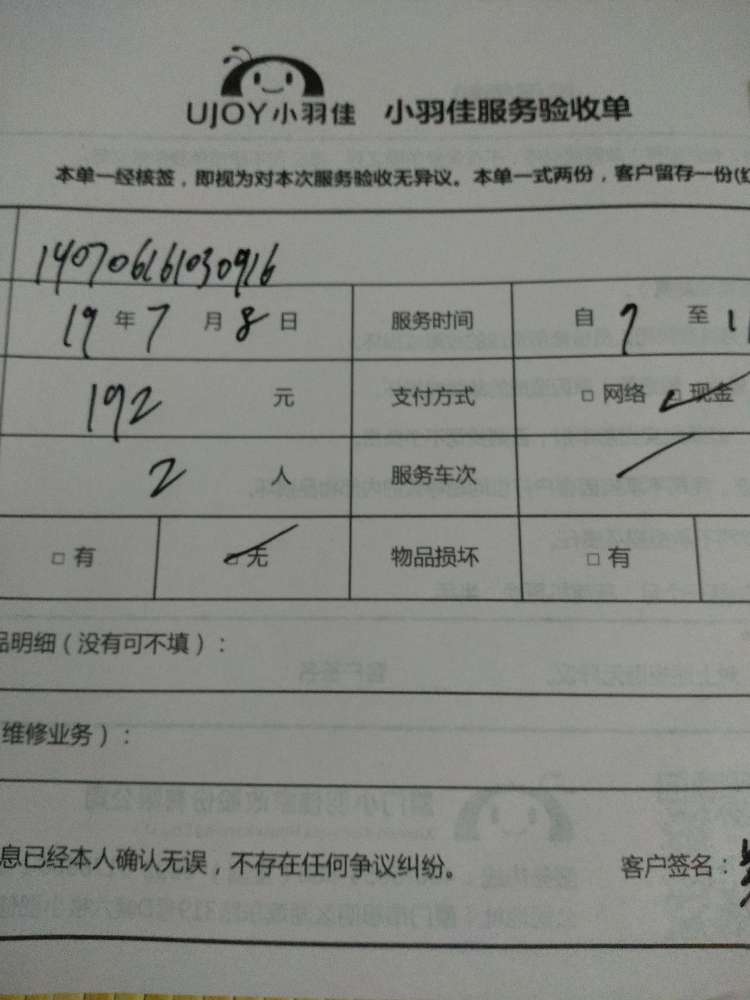 UJOY小羽佳 小羽佳服务验收单
本单一经核签，即视为对本次服务验收无异议。本单一式两份，客户留存一份(红
140706161030916
19年7月8日 服务时间 自7至11
192元 支付方式 □网络 □现金
2人 服务车次
□有 □无 物品损坏 □有
品明细（没有可不填）：
维修业务）：
息已经本人确认无误，不存在任何争议纠纷。 客户签名：